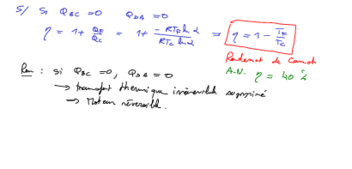 5/ Si Q_BC = 0 Q_DA = 0
η = 1 + Q_F/Q_C = 1 + (-RT_F ln α)/(RT_C ln α) ⇒ η = 1 - T_F/T_C
Rendement de Carnot
A.N. η = 40 %
Rem : si Q_BC = 0, Q_DA = 0
→ transfert thermique irréversible supprimé
→ Moteur réversible.